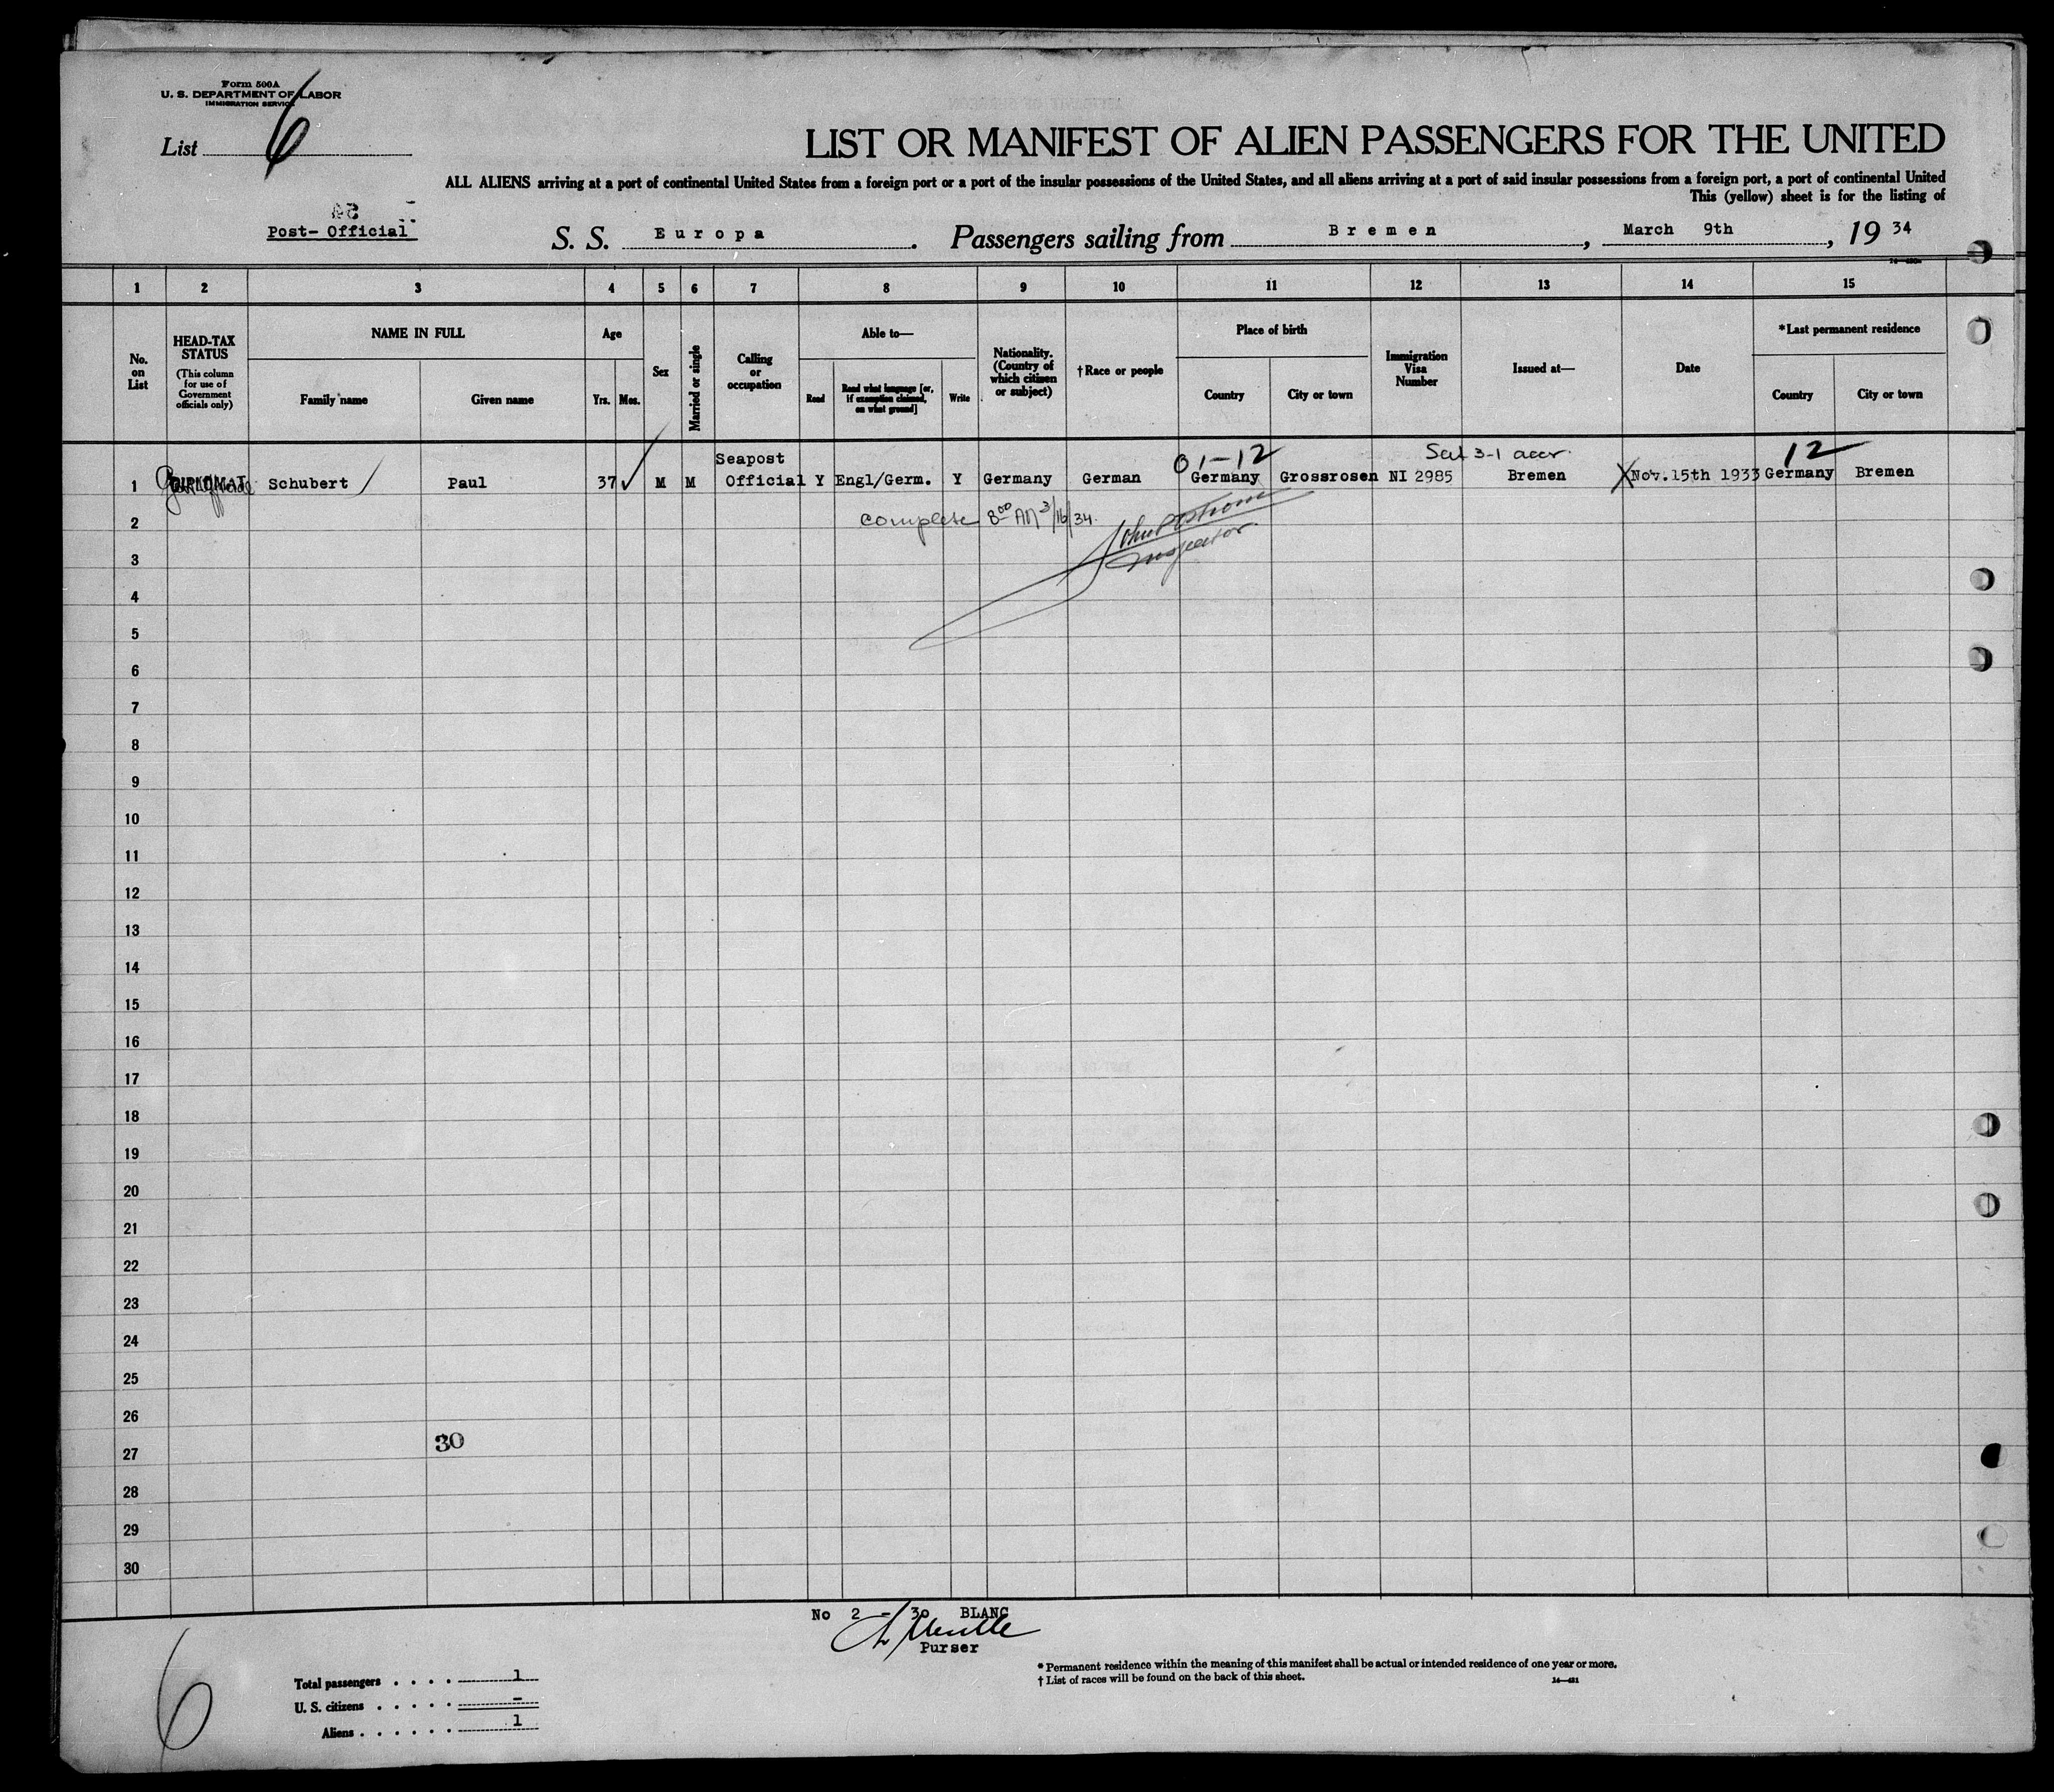 Form 500A
U. S. DEPARTMENT OF LABOR
IMMIGRATION SERVICE
List 6
LIST OR MANIFEST OF ALIEN PASSENGERS FOR THE UNITED
ALL ALIENS arriving at a port of continental United States from a foreign port or a port of the insular possessions of the United States, and all aliens arriving at a port of said insular possessions from a foreign port, a port of continental United
This (yellow) sheet is for the listing of
Post- Official
S. S. Europa. Passengers sailing from Bremen, March 9th, 19 34
1 2 3 4 5 6 7 8 9 10 11 12 13 14 15
No. on List
HEAD-TAX STATUS
(This column for use of Government officials only)
NAME IN FULL
Family name
Given name
Age
Yrs. Mos.
Sex
Married or single
Calling or occupation
Able to—
Read
Read what language [or, if exemption claimed, on what ground]
Write
Nationality. (Country of which citizen or subject)
†Race or people
Place of birth
Country
City or town
Immigration Visa Number
Issued at—
Date
*Last permanent residence
Country
City or town
01-12
3-1
12
1 DIPLOMAT Schubert Paul 37 M M Seapost Official Y Engl/Germ. Y Germany German Germany Grossrosen NI 2985 Bremen Nov. 15th 1933 Germany Bremen
2 complete 8 00 AM 3/16/34.
Inspector
3
4
5
6
7
8
9
10
11
12
13
14
15
16
17
18
19
20
21
22
23
24
25
26
30
27
28
29
30
No 2 - 30 BLANC
Purser
6
Total passengers . . . . 1
U. S. citizens . . . . . -
Aliens . . . . . . 1
* Permanent residence within the meaning of this manifest shall be actual or intended residence of one year or more.
† List of races will be found on the back of this sheet.